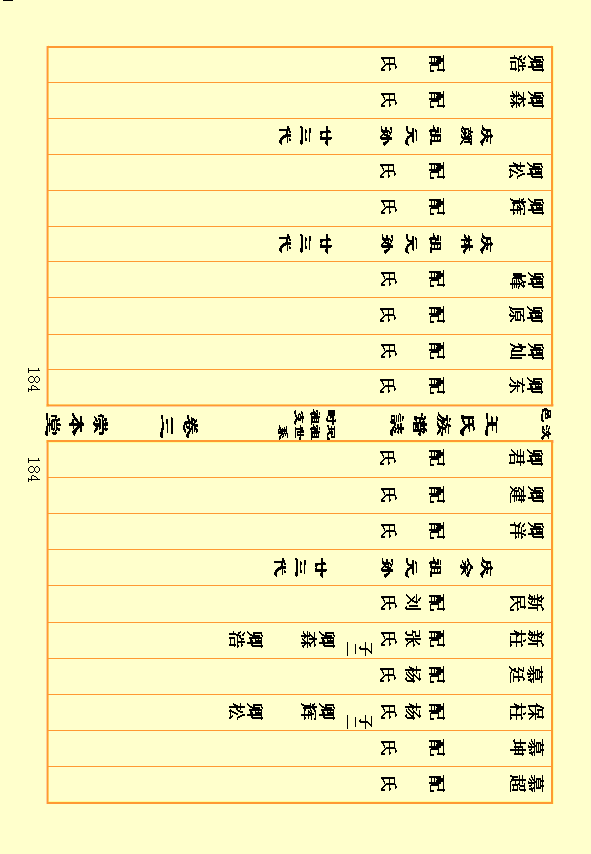 慕超 配 氏
慕坤 配 氏
保柱 配杨氏 子二 卿辉 卿松
慕廷 配杨氏
新柱 配张氏 子二 卿森 卿浩
新民 配刘氏
庆 祖元孙 廿三代
卿洋 配 氏
卿建 配 氏
卿君 配 氏
184
汝邑 王氏族谱誌
宛祖世系
时祖支
卷三 崇本堂
卿东 配 氏
卿灿 配 氏
卿原 配 氏
卿峰 配 氏
庆林祖元孙 廿三代
卿辉 配 氏
卿松 配 氏
庆颜祖元孙 廿三代
卿森 配 氏
卿浩 配 氏
184